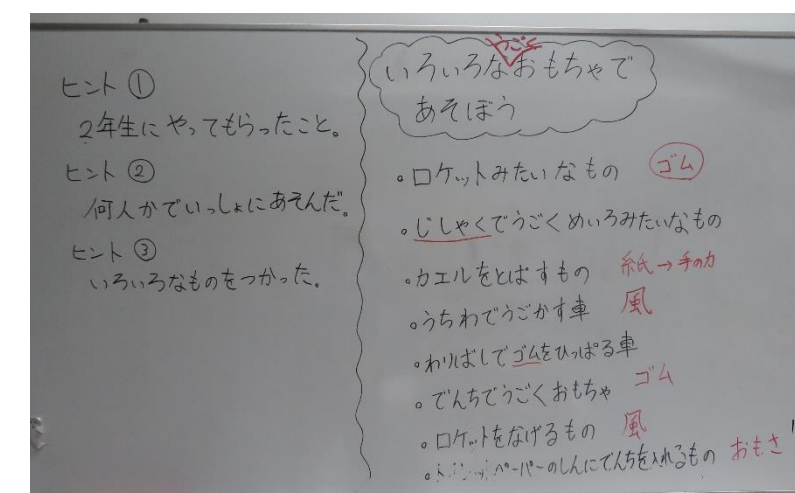 ヒント ①
2年生に やってもらったこと。
ヒント ②
何人かでいっしょにあそんだ。
ヒント ③
いろいろなものをつかった。
うごく
いろいろなおもちゃで
あそぼう
。ロケットみたいなもの ゴム
。じしゃくでうごくめいろみたいなもの
。カエルをとばすもの 紙→手の力
。うちわでうごかす車 風
。わりばしでゴムをひっぱる車
ゴム
。でんちでうごくおもちゃ
。ロケットをなげるもの 風
。ペーパーのしんにでんちを入れるもの おもさ